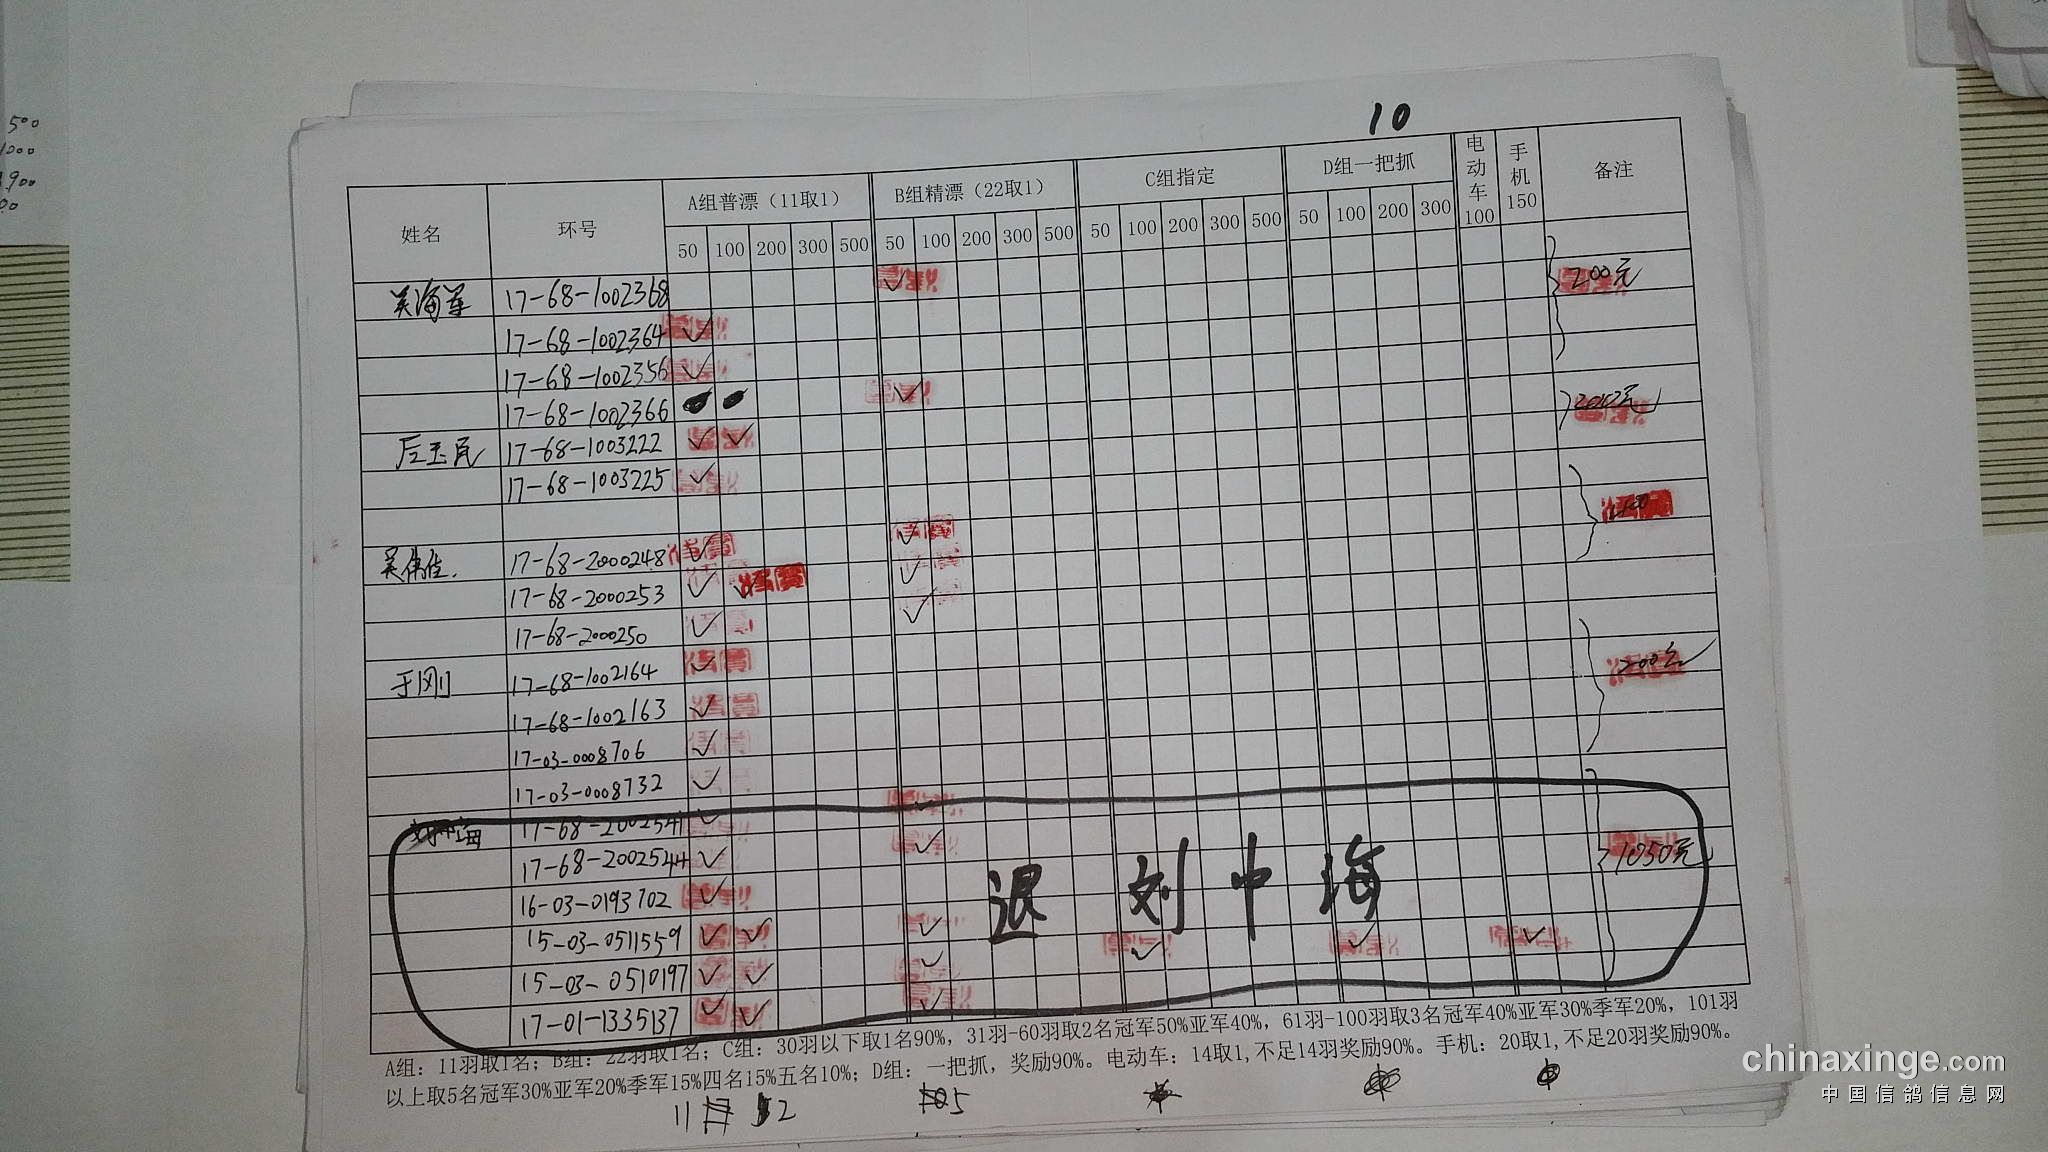 500
1000
1900
00
10
姓名 环号 A组普漂（11取1） B组精漂（22取1） C组指定 D组一把抓 电动车100 手机150 备注
50 100 200 300 500 50 100 200 300 500 50 100 200 300 500 50 100 200 300
吴海军 17-68-1002368 ✓ 200元
17-68-1002364 ✓
17-68-1002356 ✓
17-68-1002366 ✓
后玉民 17-68-1003222 ✓ ✓ 200元
17-68-1003225 ✓
吴伟佳. 17-68-2000248 ✓ ✓
17-68-2000253 ✓ ✓ ✓
17-68-2000250 ✓ ✓
于刚 17-68-1002164 ✓ 200元
17-68-1002163 ✓
17-03-0008706 ✓
17-03-0008732 ✓
刘中海 17-68-2002541 ✓ ✓
17-68-2002544 ✓ ✓ 1050元
16-03-0193702 ✓
15-03-0511559 ✓ ✓ ✓ ✓ ✓ ✓
15-03-0510197 ✓ ✓ ✓
17-01-1335137 ✓ ✓ ✓
退 刘中海
A组：11羽取1名；B组：22羽取1名；C组：30羽以下取1名90%，31羽-60羽取2名冠军50%亚军40%，61羽-100羽取3名冠军40%亚军30%季军20%，101羽
以上取5名冠军30%亚军20%季军15%四名15%五名10%；D组：一把抓，奖励90%。电动车：14取1,不足14羽奖励90%。手机：20取1,不足20羽奖励90%。
11 2 5
chinaxinge.com
中国信鸽信息网